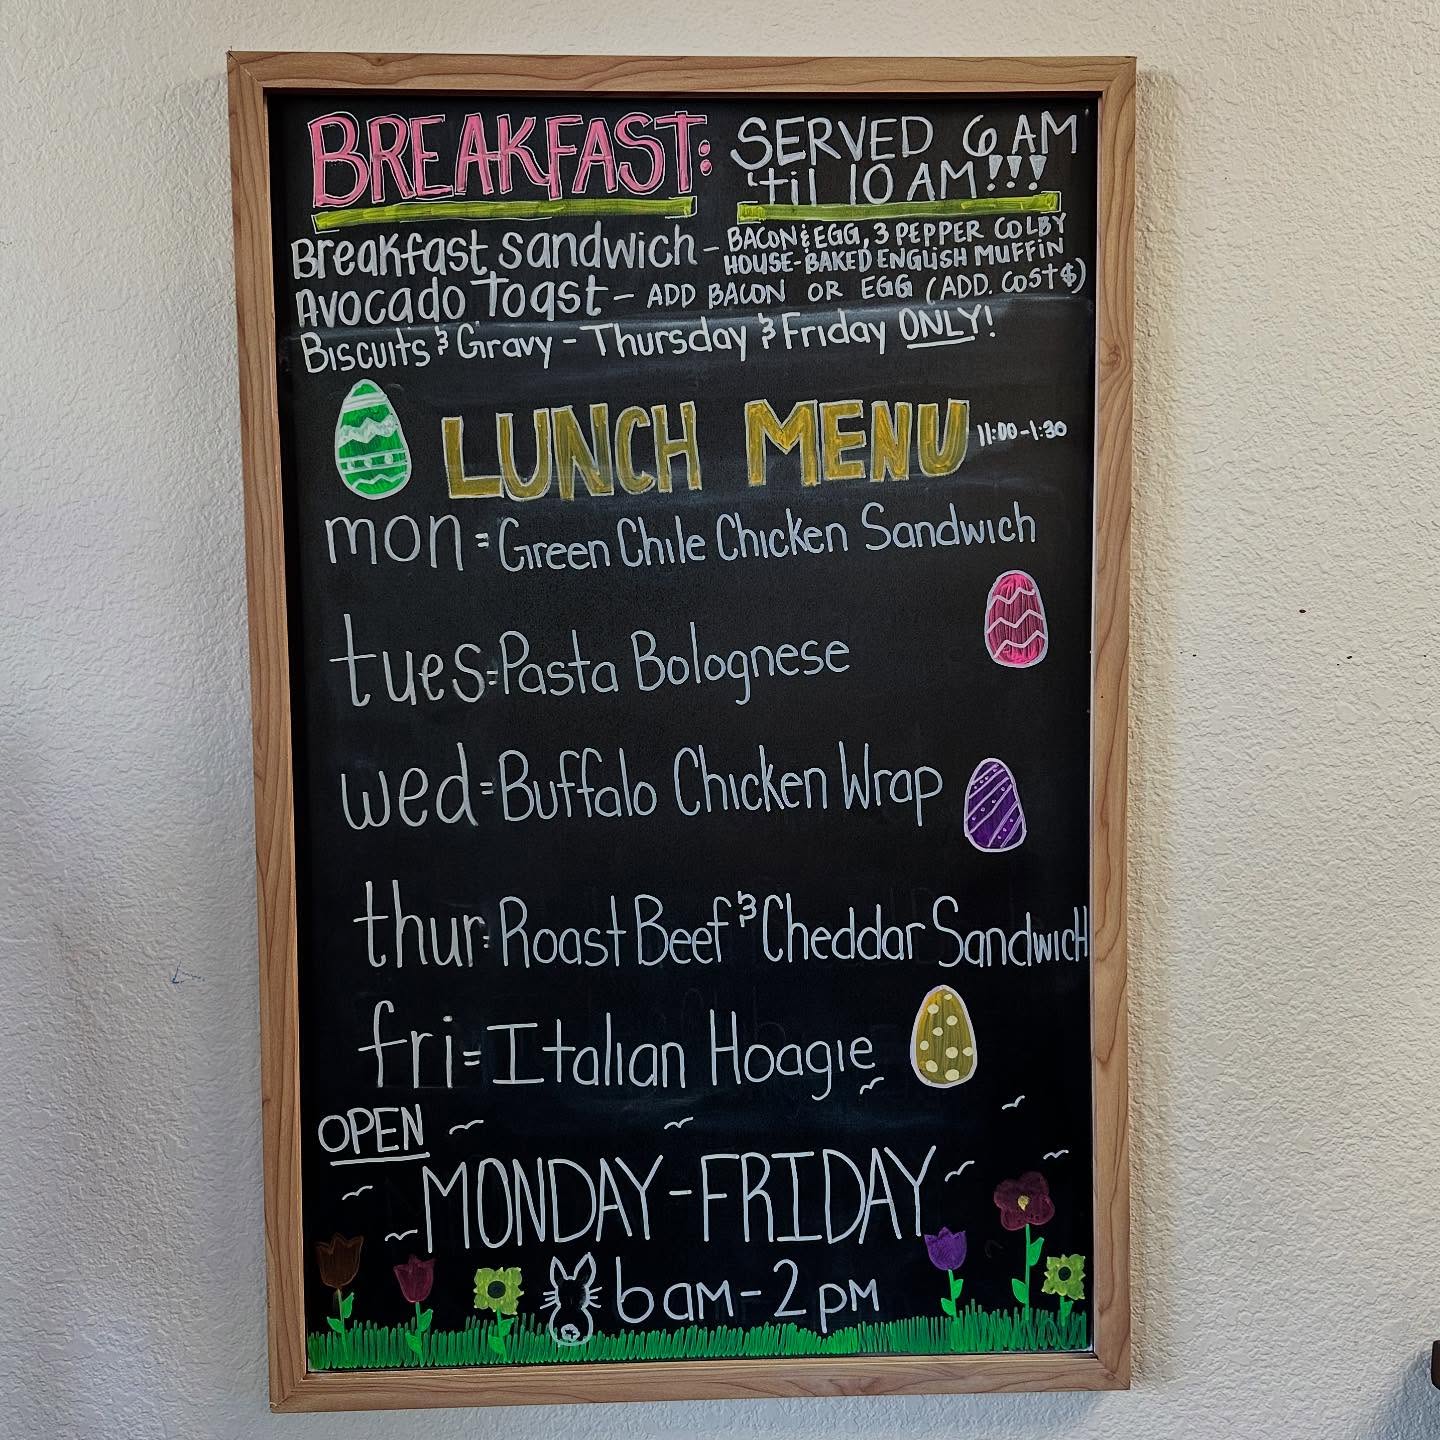 BREAKFAST: SERVED 6 AM
'til 10 AM!!!
Breakfast Sandwich - BACON & EGG, 3 PEPPER COLBY
HOUSE-BAKED ENGLISH MUFFIN
Avocado Toast - ADD BACON OR EGG (ADD. COST $)
Biscuits & Gravy - Thursday & Friday ONLY!
LUNCH MENU 11:00-1:30
mon = Green Chile Chicken Sandwich
tues = Pasta Bolognese
wed = Buffalo Chicken Wrap
thur = Roast Beef & Cheddar Sandwich
fri = Italian Hoagie
OPEN
MONDAY-FRIDAY
6am-2pm